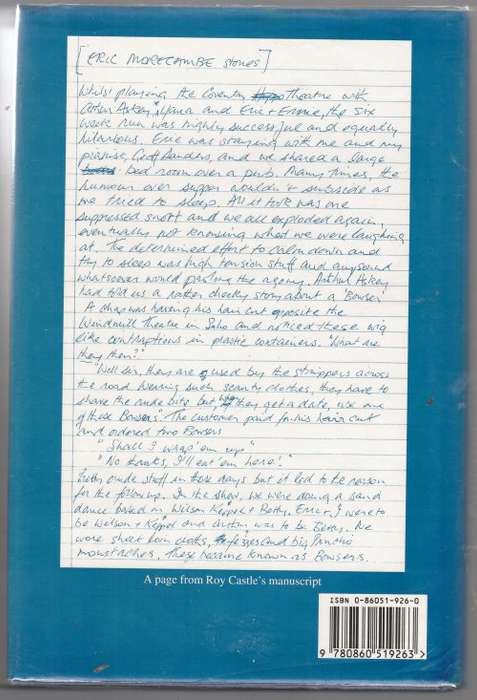 [ERIC MORECAMBE stories]
Whilst playing the Coventry Theatre with
Arthur Askey, Yana and Eric + Ernie, the six
week run was highly successful and equally
hilarious. Eric was staying with me and my
pianist, Geoff Sanders, and we shared a large
bed room over a pub. Many times, the
humour over supper wouldn't subside as
we tried to sleep. All it took was one
suppressed snort and we all exploded again,
eventually not knowing what we were laughing
at. The determined effort to calm down and
try to sleep was high tension stuff and any sound
whatsoever would prolong the agony. Arthur Askey
had told us a rather cheeky story about a Bowser.
A chap was having his hair cut opposite the
Windmill Theatre in Soho and noticed these wig
like contraptions in plastic containers. "What are
they then?"
"Well Sir, they are used by the strippers across
the road. Wearing such scanty clothes, they have to
shave the rude bits but, when they get a date, use one
of these Bowsers." The customer paid for his hair cut
and ordered two Bowsers
"Shall I wrap 'em up"
"No thanks, I'll eat 'em here!"
Pretty crude stuff in those days but it led to the reason
for the follow up. In the show, we were doing a sand
dance based on Wilson Keppel + Betty. Eric + I were to
be Wilson + Keppel and Arthur was to be Betty. We
wore short loin cloths, fezzes and big frantic
moustaches. These became known as Bowsers.
A page from Roy Castle's manuscript
ISBN 0-86051-926-0
9 780860 519263 >